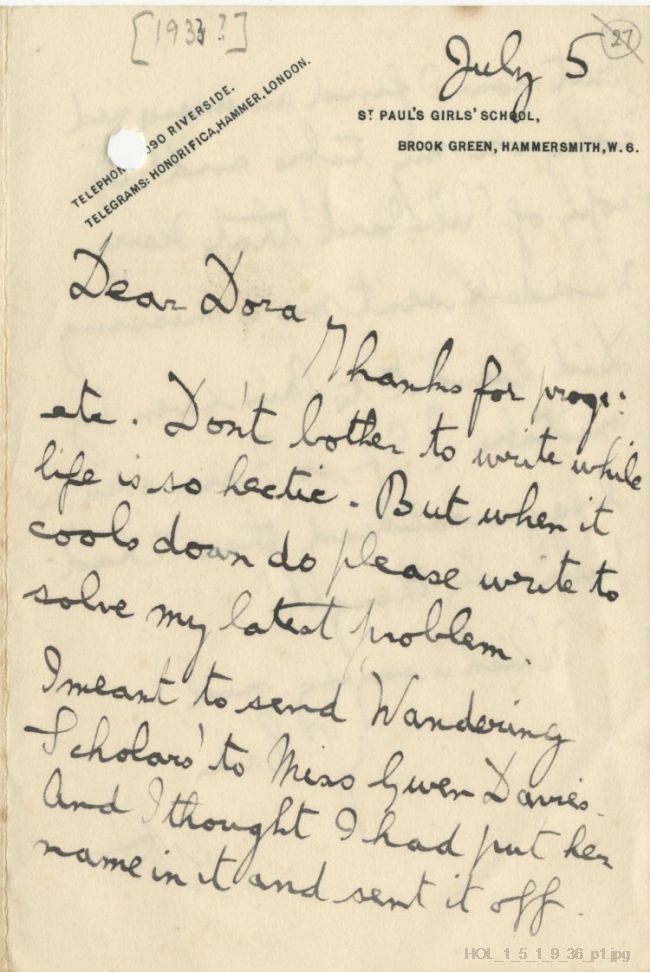 [1933?]
27
July 5
ST PAUL'S GIRLS' SCHOOL,
BROOK GREEN, HAMMERSMITH, W. 6.
TELEPHON 090 RIVERSIDE.
TELEGRAMS: HONORIFICA, HAMMER, LONDON.
Dear Dora
Thanks for progs:
etc. Don't bother to write while
life is so hectic. But when it
cools down do please write to
solve my latest problem.
I meant to send Wandering
Scholars' to Miss Gwen Davies.
And I thought I had put her
name in it and sent it off.
HOL_1_5_1_9_36_p1.jpg